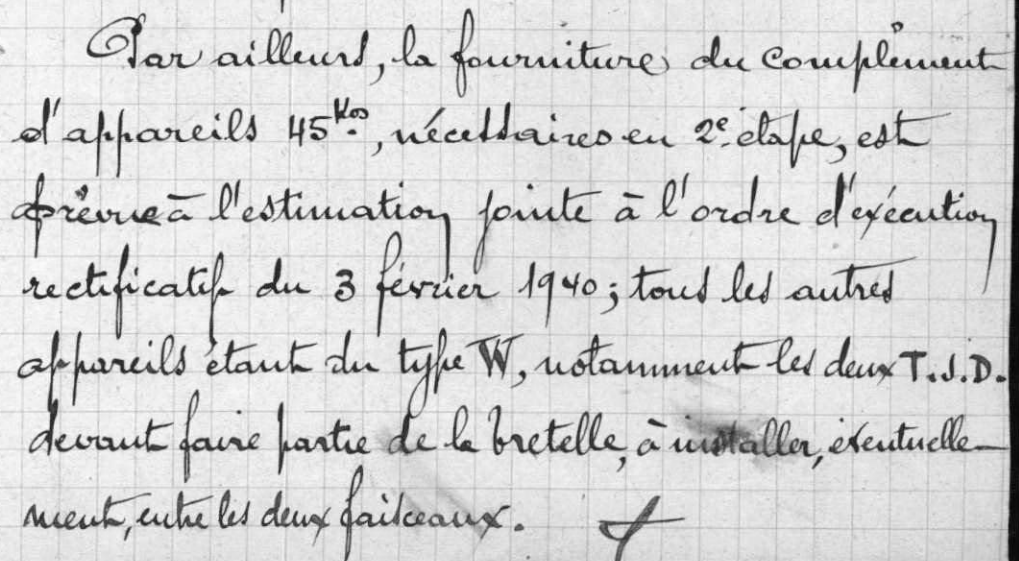 Par ailleurs, la fourniture du complément
d'appareils 45 kos, nécessaires en 2e étape, est
prévue à l'estimation jointe à l'ordre d'exécution
rectificatif du 3 février 1940; tous les autres
appareils étant du type W, notamment les deux T.J.D.
devant faire partie de la bretelle, à installer, éventuelle-
ment, entre les deux faisceaux.